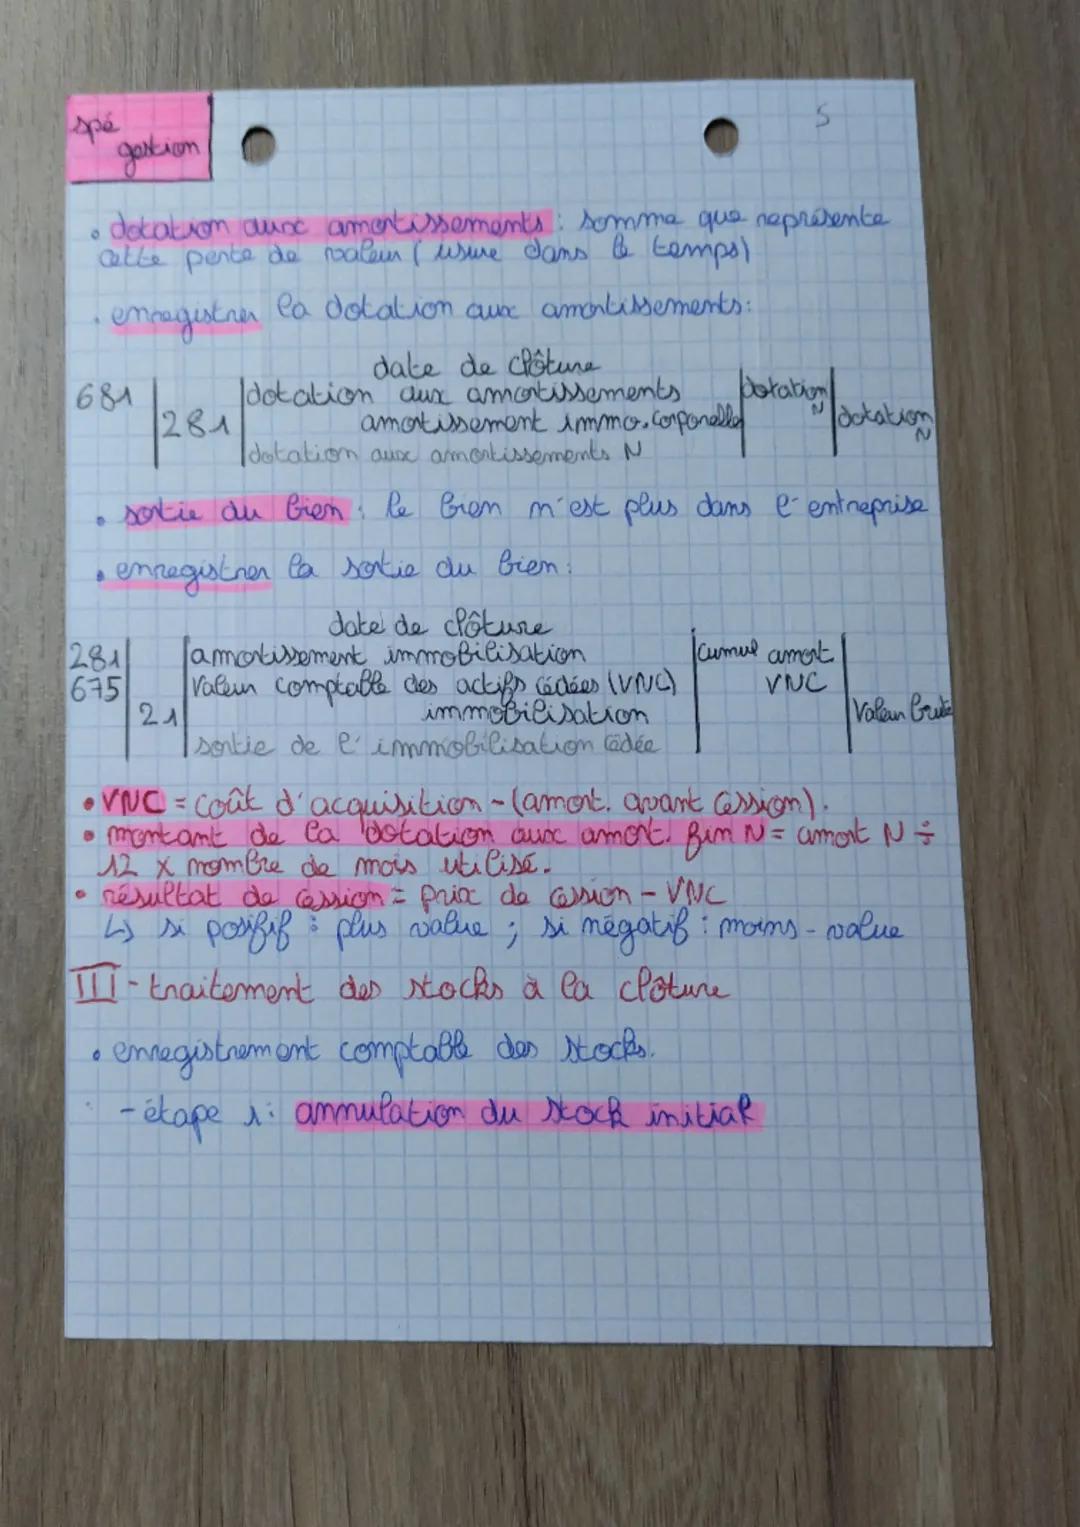 spé
gestion
5
• dotation aux amortissements : somme que représente
cette perte de valeur (usure dans le temps)
• enregistrer la dotation aux amortissements :
date de clôture
681 dotation aux amortissements dotation N
281 amortissement immo. corporelle dotation N
dotation aux amortissements N
• sortie du bien : le bien n'est plus dans l'entreprise
• enregistrer la sortie du bien :
date de clôture
281 amortissement immobilisation cumul amort
675 Valeur comptable des actifs cédées (VNC) VNC
21 immobilisation Valeur brute
sortie de l'immobilisation cédée
• VNC = coût d'acquisition - (amort. avant cession).
• montant de la dotation aux amort. fin N = amort N ÷
12 x nombre de mois utilisé.
• résultat de cession = prix de cession - VNC
↳ si posifif : plus value ; si négatif : moins-value
III - traitement des stocks à la clôture
• enregistrement comptable des stocks.
- étape 1 : annulation du stock initial